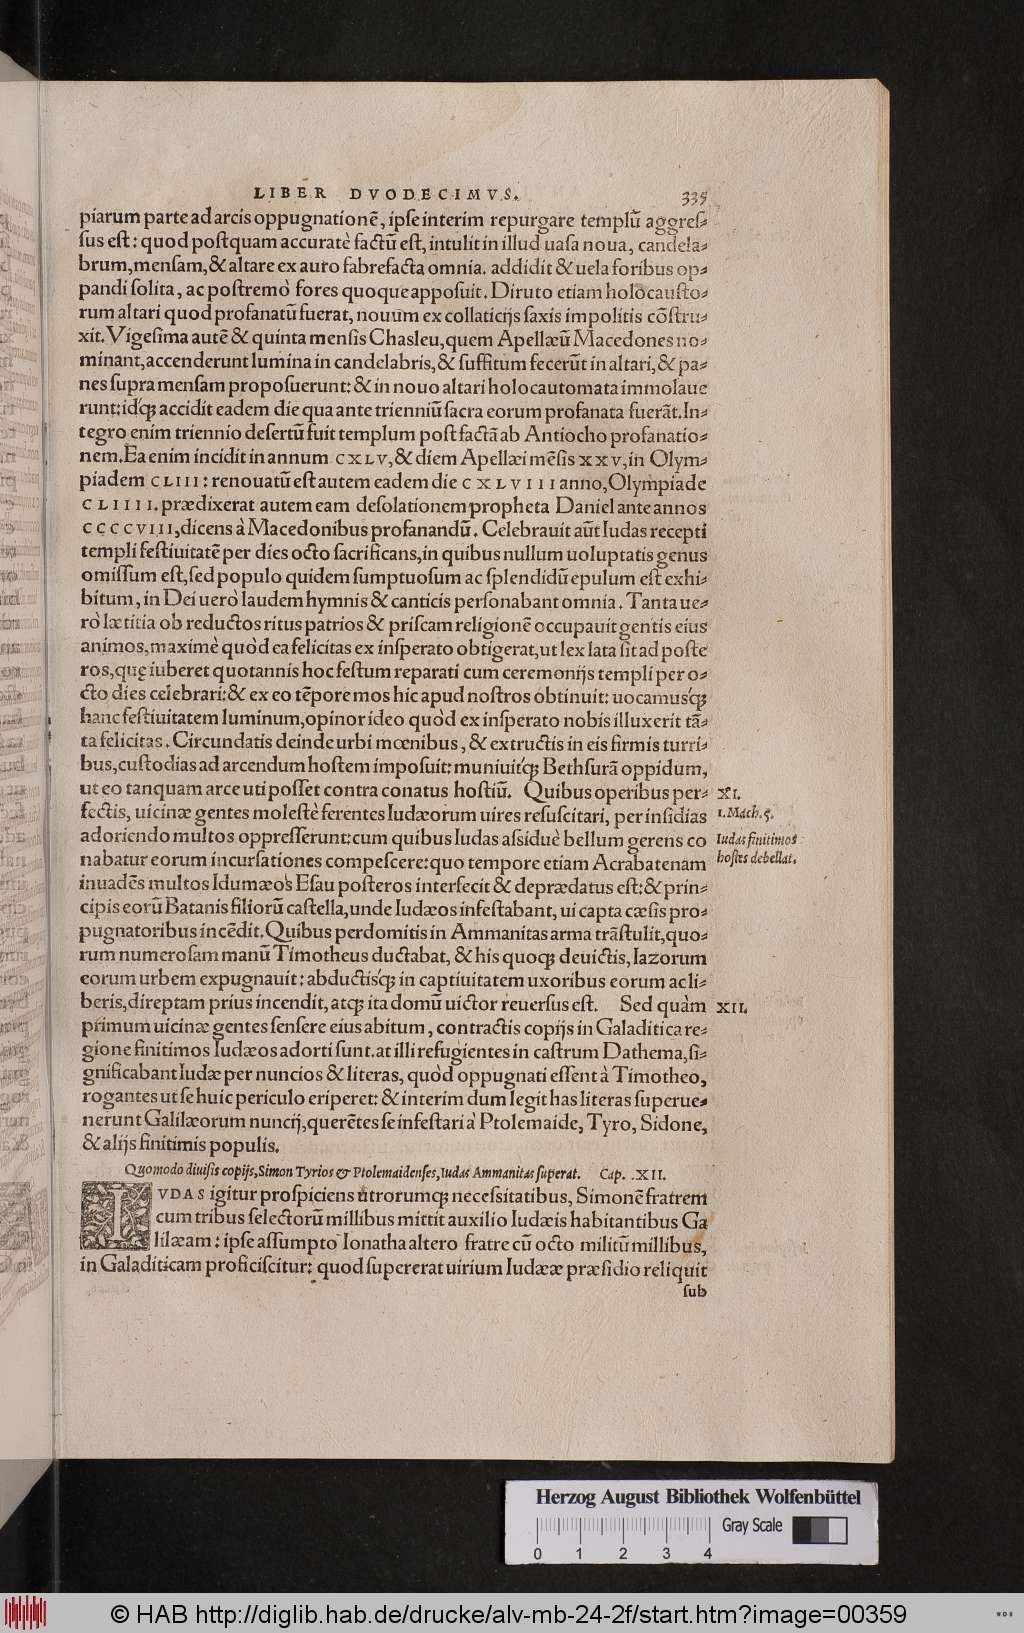 LIBER DVODECIMVS. 335
piarum parte ad arcis oppugnationē, ipse interim repurgare templū aggres-
sus est: quod postquam accuratè factū est, intulit in illud uasa noua, candela-
brum, mensam, & altare ex auro fabrefacta omnia. addidit & uela foribus op-
pandi solita, ac postremò fores quoque apposuit. Diruto etiam holocausto-
rum altari quod profanatū fuerat, nouum ex collaticijs saxis impolitis cōstru-
xit. Vigesima autē & quinta mensis Chasleu, quem Apellæū Macedones no-
minant, accenderunt lumina in candelabris, & suffitum fecerūt in altari, & pa-
nes supra mensam proposuerunt: & in nouo altari holocautomata immolaue
runt: idq́; accidit eadem die qua ante trienniū sacra eorum profanata fuerāt. In-
tegro enim triennio desertū fuit templum post factā ab Antiocho profanatio-
nem. Ea enim incidit in annum CXLV, & diem Apellæi mēsis XXV, in Olym-
piadem CLIII: renouatū est autem eadem die CXLVIII anno, Olympiade
CLIIII. prædixerat autem eam desolationem propheta Daniel ante annos
CCCCVIII, dicens à Macedonibus profanandū. Celebrauit aūt Iudas recepti
templi festiuitatē per dies octo sacrificans, in quibus nullum uoluptatis genus
omissum est, sed populo quidem sumptuosum ac splendidū epulum est exhi-
bitum, in Dei uerò laudem hymnis & canticis personabant omnia. Tanta ue-
rò lætitia ob reductos ritus patrios & priscam religionē occupauit gentis eius
animos, maximè quòd ea felicitas ex insperato obtigerat, ut lex lata sit ad poste
ros, quę iuberet quotannis hoc festum reparati cum ceremonijs templi per o-
cto dies celebrari: & ex eo tēpore mos hic apud nostros obtinuit: uocamusq́;
hanc festiuitatem luminum, opinor ideo quòd ex insperato nobis illuxerit tā-
ta felicitas. Circundatis deinde urbi mœnibus, & extructis in eis firmis turri-
bus, custodias ad arcendum hostem imposuit: muniuitq́; Bethsurā oppidum,
ut eo tanquam arce uti posset contra conatus hostiū. Quibus operibus per- XI.
fectis, uicinæ gentes molestè ferentes Iudæorum uires resuscitari, per insidias 1. Mach. 5.
adoriendo multos oppresserunt: cum quibus Iudas assiduè bellum gerens co Iudas finitimos
nabatur eorum incursationes compescere: quo tempore etiam Acrabatenam hostes debellat.
inuadēs multos Idumæos Esau posteros interfecit & deprædatus est: & prin-
cipis eorū Batanis filiorū castella, unde Iudæos infestabant, ui capta cæsis pro-
pugnatoribus incēdit. Quibus perdomitis in Ammanitas arma trāstulit, quo-
rum numerosam manū Timotheus ductabat, & his quoq; deuictis, Iazorum
eorum urbem expugnauit: abductisq́; in captiuitatem uxoribus eorum ac li-
beris, direptam prius incendit, atq; ita domū uictor reuersus est. Sed quàm XII.
primum uicinæ gentes sensere eius abitum, contractis copijs in Galaditica re-
gione finitimos Iudæos adorti sunt. at illi refugientes in castrum Dathema, si-
gnificabant Iudæ per nuncios & literas, quòd oppugnati essent à Timotheo,
rogantes ut se huic periculo eriperet: & interim dum legit has literas superue-
nerunt Galilæorum nuncij, querētes se infestari à Ptolemaide, Tyro, Sidone,
& alijs finitimis populis.
Quomodo diuisis copijs, Simon Tyrios & Ptolemaidenses, Iudas Ammanitas superat. Cap. .XII.
IVDAS igitur prospiciens utrorumq; necessitatibus, Simonē fratrem
cum tribus selectorū millibus mittit auxilio Iudæis habitantibus Ga
lilæam: ipse assumpto Ionatha altero fratre cū octo militū millibus,
in Galaditicam proficiscitur: quod supererat uirium Iudææ præsidio reliquit
sub
Herzog August Bibliothek Wolfenbüttel
Gray Scale
0 1 2 3 4
© HAB http://diglib.hab.de/drucke/alv-mb-24-2f/start.htm?image=00359